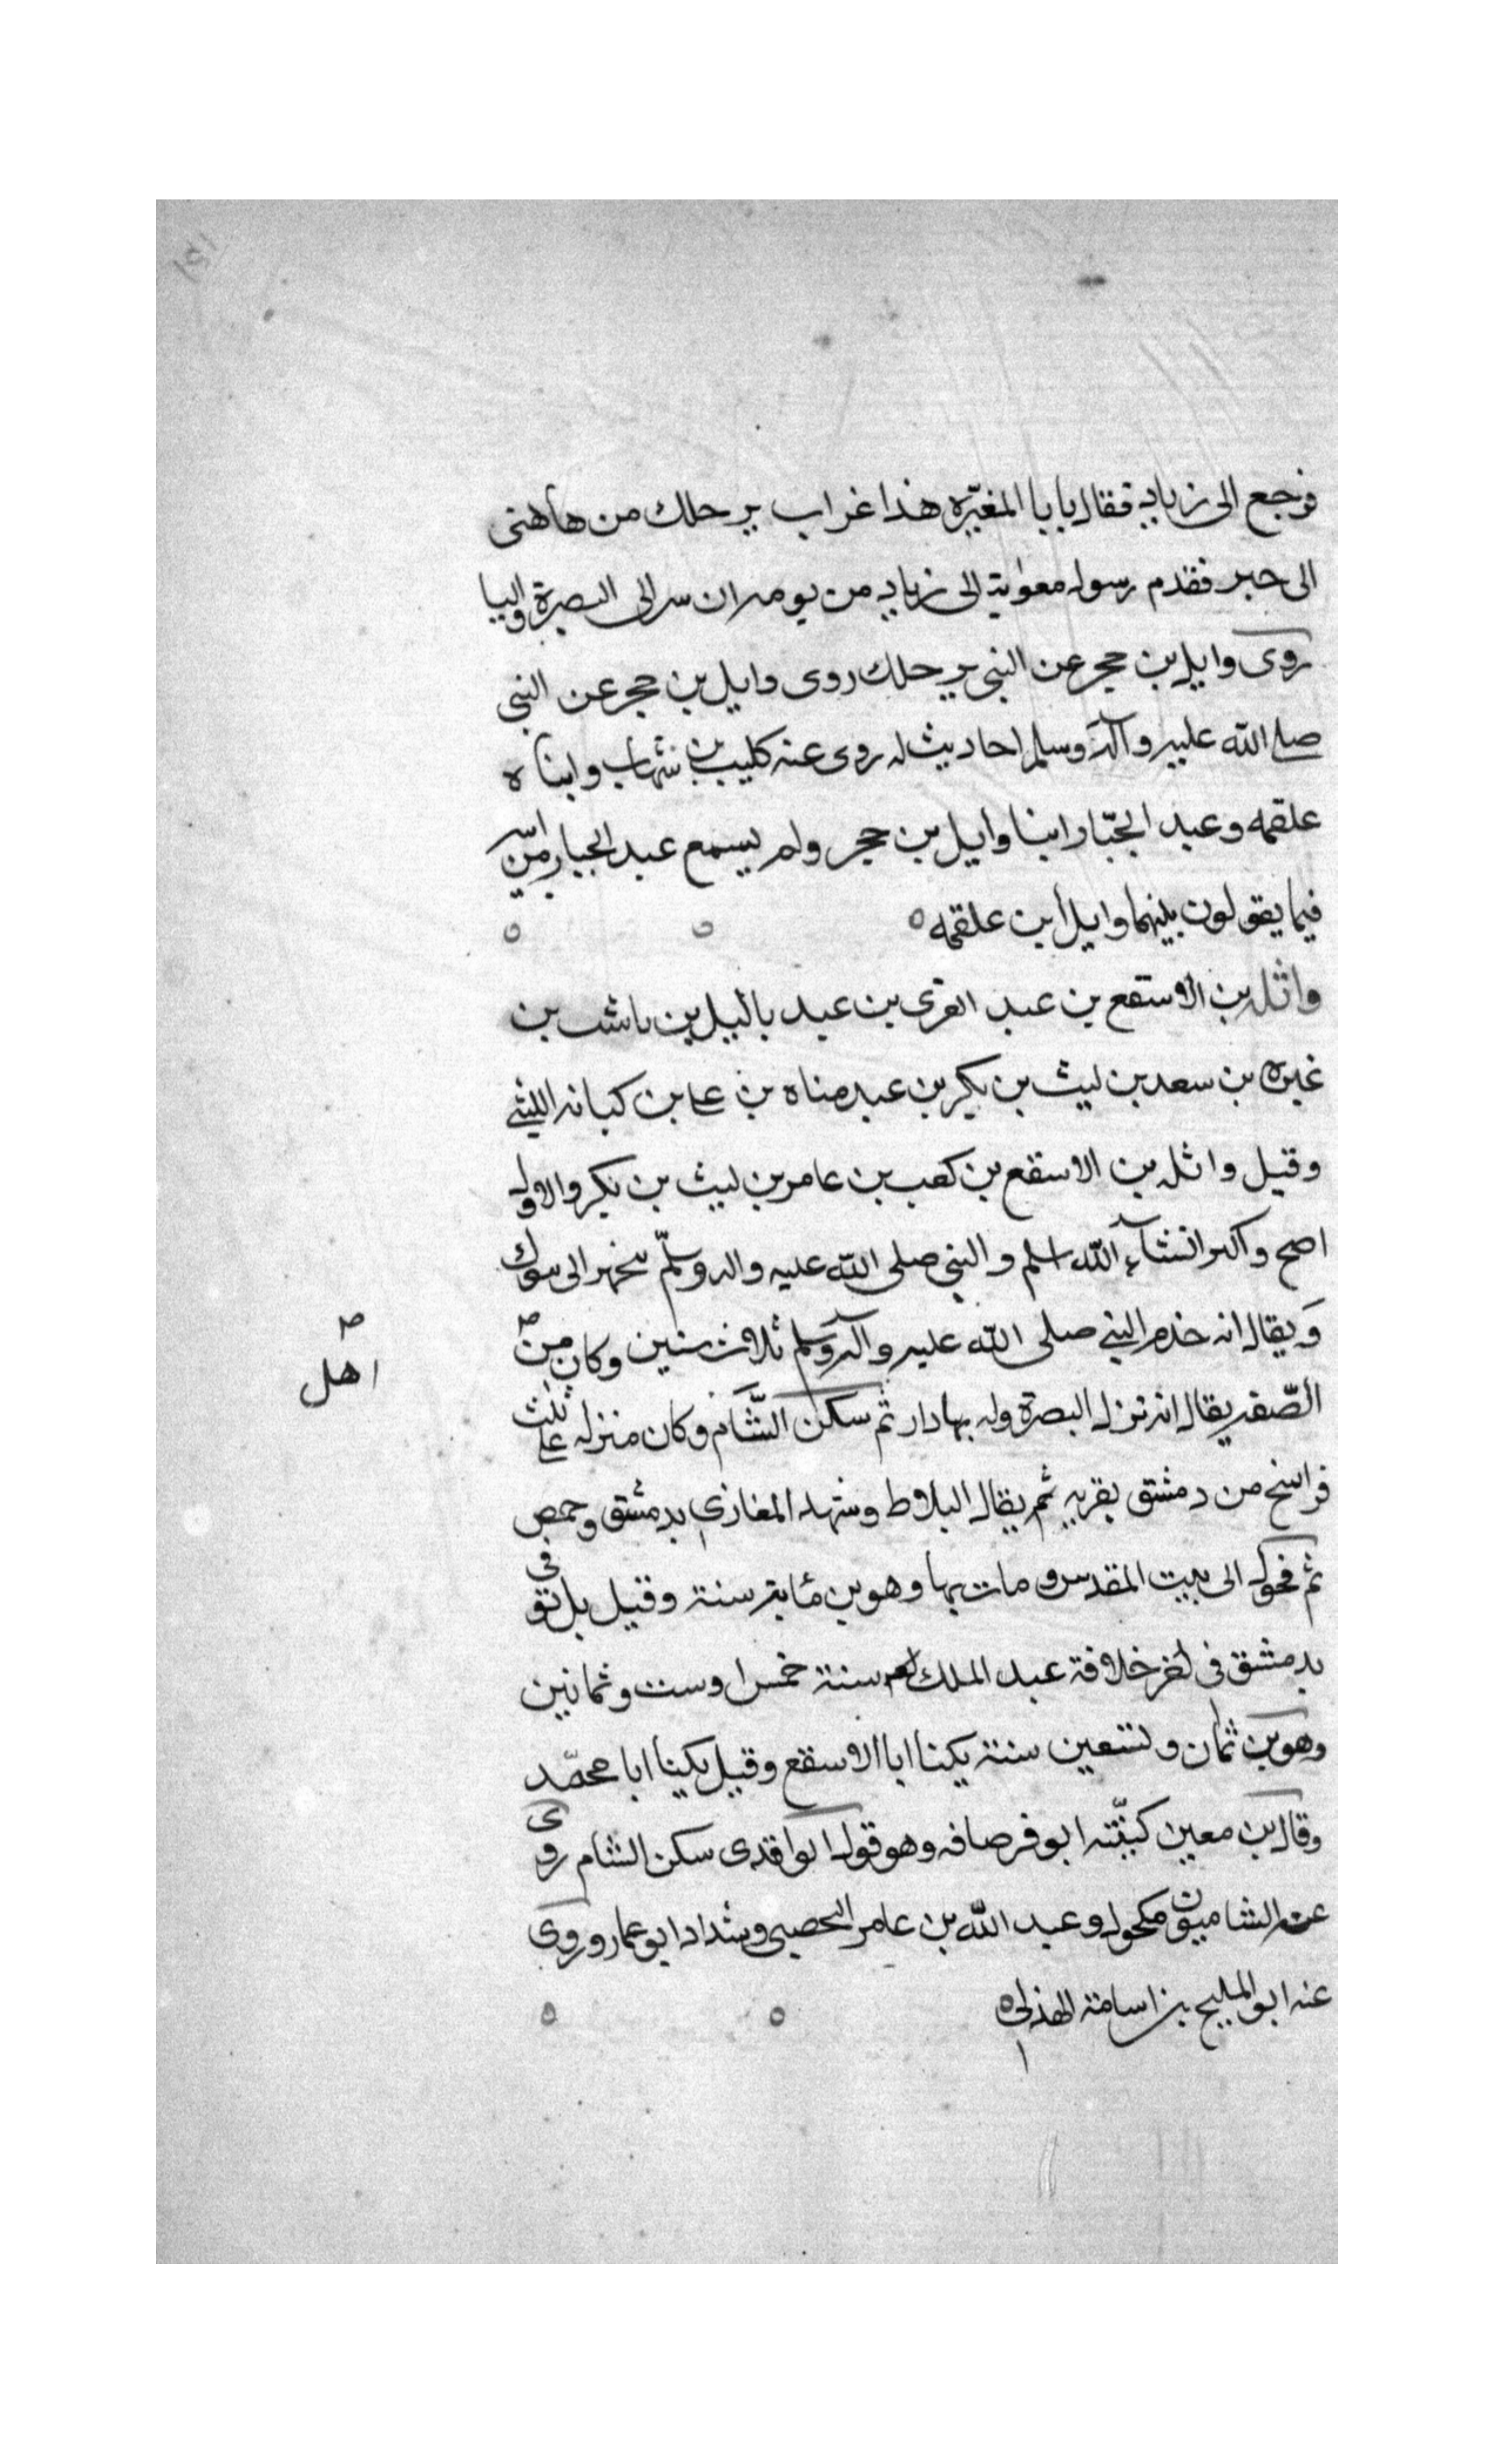 فرجع الى زياد فقال يابا المغيره هذا غراب يرحلك من هاهنى
الى حبر فقدم رسول معوية الى زياد من يومه ان سر الى البصرة واليا
روى وايل بن حجر عن النبي يرحلك روى وايل بن حجر عن النبي
صلى الله عليه وآله وسلم احاديث له روى عنه كليب بن شهاب وابناه
علقمه وعبد الجبّار ابنا وايل بن حجر ولم يسمع عبد الجبار من ابيه
فيما يقولون بينهما وايل ابن علقمه
واثله بن الاسقع بن عبد العزى بن عبد ياليل بن ناشب بن
غيره بن سعد بن ليث بن بكر بن عبد مناه بن على بن كنانه الليثي
وقيل واثله بن الاسقع بن كعب بن عامر بن ليث بن بكر والاول
اصح واكبر انشآء الله اسلم والنبي صلى الله عليه واله وسلّم يتجهز الى تبوك
ويقال انه خدم النبي صلى الله عليه وآله وسلم ثلاث سنين وكان من
اهل
الصّفه يقال انه نزل البصرة وله بها دار ثم سكن الشّام وكان منزله على ثلث
فراسخ من دمشق بقريه ثم يقال البلاط وشهد المغازي بدمشق وحمص
ثم تحول الى بيت المقدس ومات بها وهو بن مائة سنة وقيل بل توفي
بدمشق في اخر خلافة عبد الملك سنة خمس او ست وثمانين
وهو بن ثمان وتسعين سنة يكنا ابا الاسقع وقيل يكنا ابا محمّد
وقال بن معين كنيّته ابو قرصافه وهو قول الواقدى سكن الشام روى
عنه الشاميون مكحول وعبد الله بن عامر اليحصبي وشداد ابو عمار وروى
عنه ابو المليح بن اسامة الهذلي